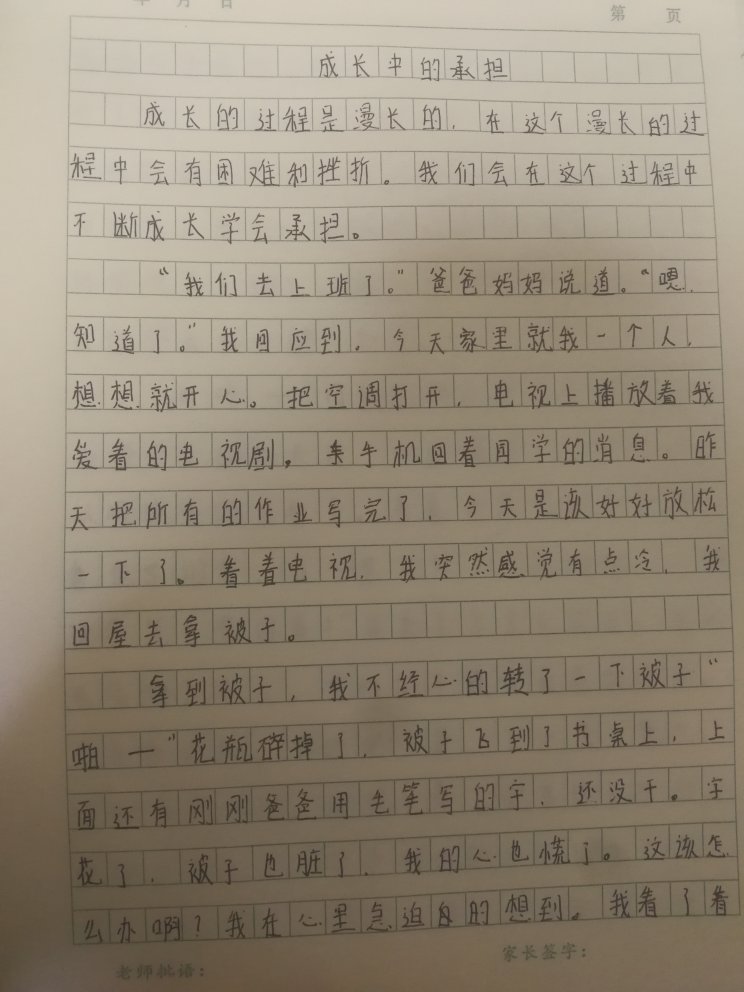 年 月 日
第 页
成长中的承担
成长的过程是漫长的，在这个漫长的过
程中会有困难和挫折。我们会在这个过程中
不断成长学会承担。
“我们去上班了。”爸爸妈妈说道。“嗯，
知道了。”我回应到，今天家里就我一个人，
想想就开心。把空调打开，电视上播放着我
爱看的电视剧。亲手机回着同学的消息。昨
天把所有的作业写完了，今天是该好好放松
一下了。看着电视，我突然感觉有点冷，我
回屋去拿被子。
拿到被子，我不经心的转了一下被子“
啪—”花瓶碎掉了，被子飞到了书桌上，上
面还有刚刚爸爸用毛笔写的字，还没干。字
花了，被子也脏了，我的心也慌了。这该怎
么办啊？我在心里急迫的想到。我看了看
老师批语：
家长签字：